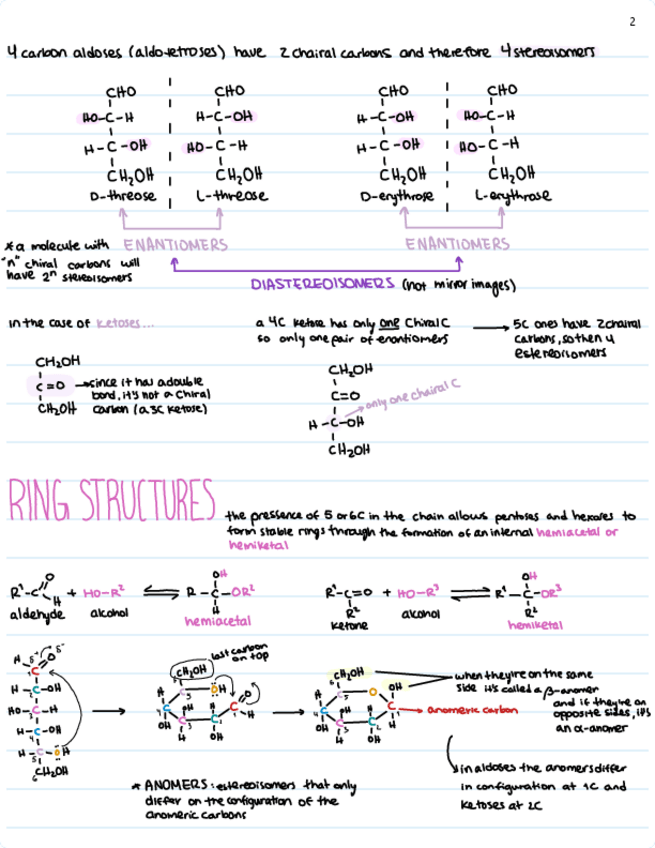 2
4 carbon aldoses (aldo-tetroses) have 2 chairal carbons and therefore 4 stereoisomers
CHO CHO CHO CHO
HO-C-H H-C-OH H-C-OH HO-C-H
H-C-OH HO-C-H H-C-OH HO-C-H
CH2OH CH2OH CH2OH CH2OH
D-threose L-threose D-erythrose L-erythrose
*a molecule with ENANTIOMERS ENANTIOMERS
"n" chiral carbons will
have 2^n stereoisomers
DIASTEREOISOMERS (not mirror images)
in the case of ketoses...
a 4C ketose has only one chiral C
so only one pair of enantiomers
5C ones have 2 chairal
carbons, so then 4
estereoisomers
CH2OH
C=O since it has a double
bond, it's not a chiral
CH2OH carbon (a 3C ketose)
CH2OH
C=O
only one chairal C
H-C-OH
CH2OH
RING STRUCTURES
the pressence of 5 or 6C in the chain allows pentoses and hexoses to
form stable rings through the formation of an internal hemiacetal or
hemiketal
R1-C O H + HO-R2 R-C-OR2 OH
aldehyde alcohol hemiacetal
R1-C=O + HO-R3 R1-C-OR3 OH
R2 R2
ketone alcohol hemiketal
H δ+ C O δ-
1
H-C-OH
2
HO-C-H
3
H-C-OH
4
H-C-OH
5
CH2OH
6
last carbon
on top
CH2OH
H C OH
5
H C OH H C O
4 1 H
OH C C
3 2
H OH
CH2OH
H C O OH
H C OH H C
OH C C
H OH
anomeric carbon
when they're on the same
side it's called a β-anomer
and if they're on
opposite sides, it's
an α-anomer
in aldoses the anomers differ
in configuration at 1C and
ketoses at 2C
* ANOMERS: estereoisomers that only
differ on the configuration of the
anomeric carbons